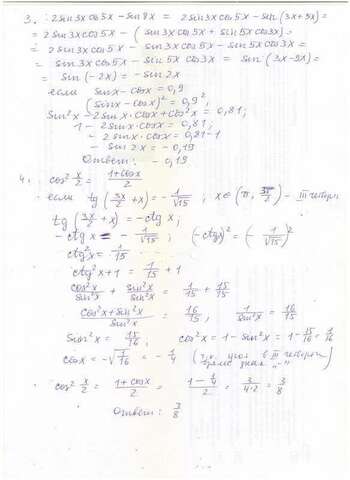 3. 2sin3x cos5x - sin8x = 2sin3x cos5x - sin(3x+5x) =
= 2sin3x cos5x - (sin3x cos5x + sin5x cos3x) =
= 2sin3x cos5x - sin3x cos5x - sin5x cos3x =
= sin3x cos5x - sin5x cos3x = sin(3x-5x) =
= sin(-2x) = -sin2x
если sinx - cosx = 0,9
(sinx - cosx)² = 0,9²,
sin²x - 2sinx·cosx + cos²x = 0,81;
1 - 2sinx·cosx = 0,81;
- 2sinx·cosx = 0,81-1
- sin2x = - 0,19
Ответ: - 0,19
4. cos² x/2 = (1+cosx)/2
если tg(3π/2 + x) = -1/√15; x∈(π, 3π/2) - III четверти
tg(3π/2 + x) = -ctgx;
-ctgx = -1/√15; (-ctgx)² = (-1/√15)²
ctg²x = 1/15
ctg²x + 1 = 1/15 + 1
cos²x/sin²x + sin²x/sin²x = 1/15 + 15/15
(cos²x + sin²x)/sin²x = 16/15, 1/sin²x = 16/15
sin²x = 15/16, cos²x = 1 - sin²x = 1 - 15/16 = 1/16
cosx = -√1/16 = -1/4 (т.к. угол в III четверти знак "-")
cos² x/2 = (1+cosx)/2 = (1-1/4)/2 = 3/(4·2) = 3/8
Ответ: 3/8